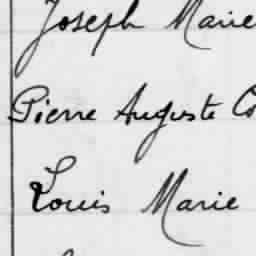 Joseph Marie
Pierre Auguste
Louis Marie